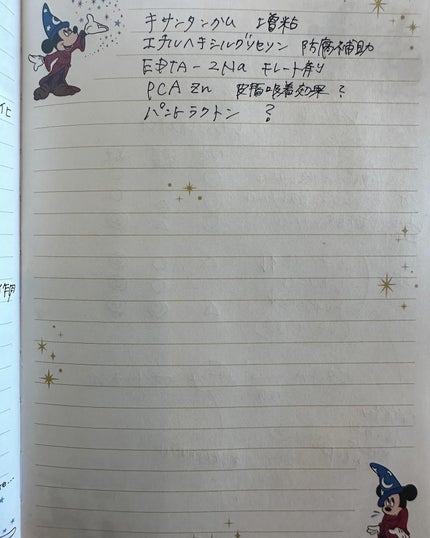 化
キサンタンガム 増粘
エチルヘキシルグリセリン 防腐補助
EDTA-2Na キレート剤
PCA Zn 皮脂吸着効果?
パントラクトン ?
作用